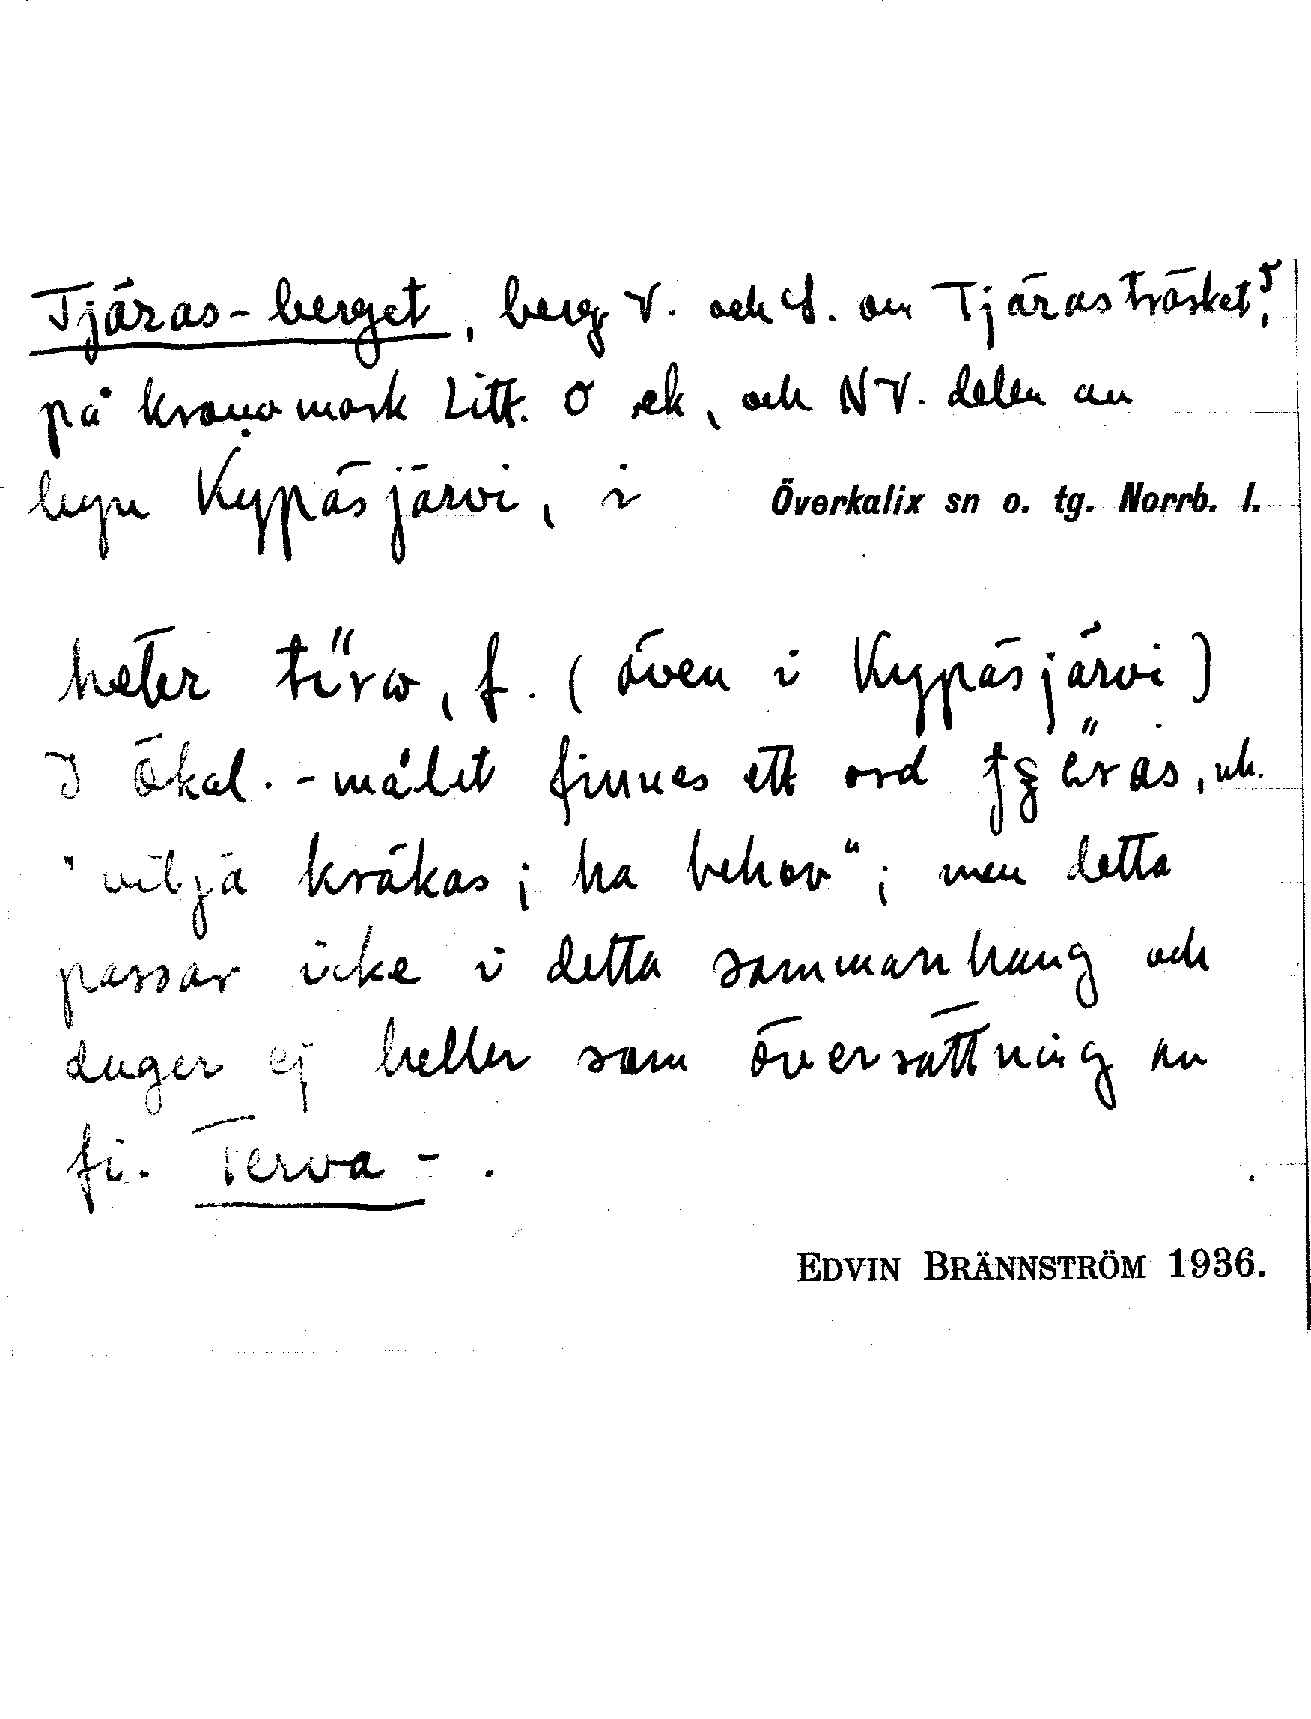 Tjäras-berget, berg V. och S. om Tjärasträsket⁵,
på kronomark Litt. O ek, och NV. delen av
byn Kypäsjärvi, i Överkalix sn o. tg. Norrb. l.
heter tı̈rw, f. (även i Kypäsjärvi)
I Ökal.-målet finnes ett ord
"vilja kräkas; ha behov"; men detta
passar icke i detta sammanhang och
duger ej heller som översättning av
fi. Terva-.
EDVIN BRÄNNSTRÖM 1936.